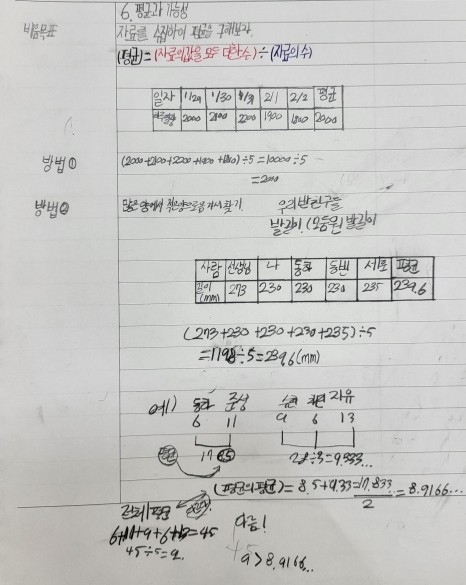 6. 평균과 가능성
자료를 수집하여 평균을 구해보자.
(평균)=(자료의 값을 모두 더한 수)÷(자료의 수)
일자 1/29 1/30 1/31 2/1 2/2 평균
2000 2100 2200 1900 1800 2000
방법① (2000+2100+2200+1900+1800)÷5=10000÷5
=2000
방법②
우리 반 친구들
발길이. (모둠원) 발길이
사람 선생님 나 동화 평균
길이(mm) 273 230 230 230 235 239.6
(273+230+230+230+235)÷5
=1198÷5=239.6(mm)
예) 동화 준성 지유
6 11 9 6 13
평균 17 8.5 28÷3=9.333...
(평균의 평균)=8.5+9.33=17.833/2=8.9166...
전체 평균
6+11+9+6+13=45
45÷5=9.
다름!
9>8.9166...